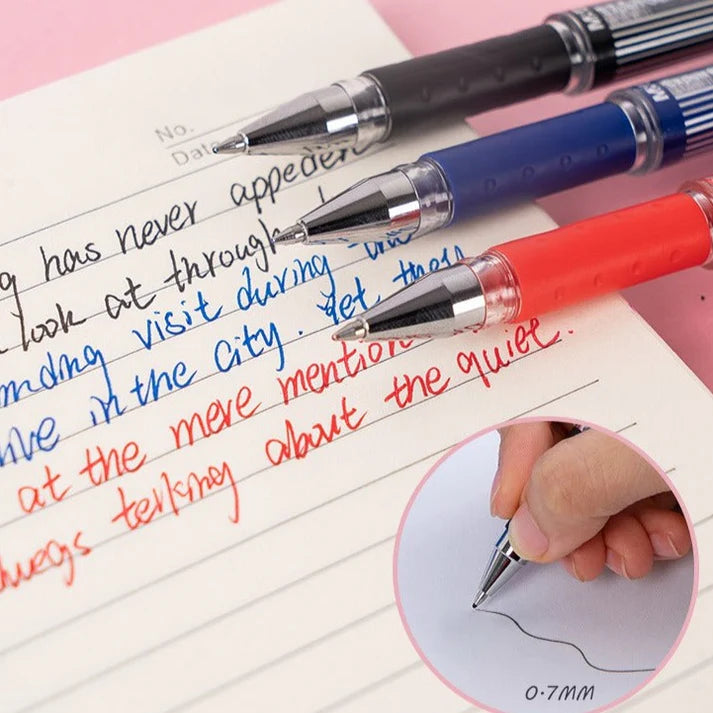 No.
Date
has never appeden
look at through
visit during the
live in the city. yet them
at the mere mention
terking about the quiet.
0.7MM